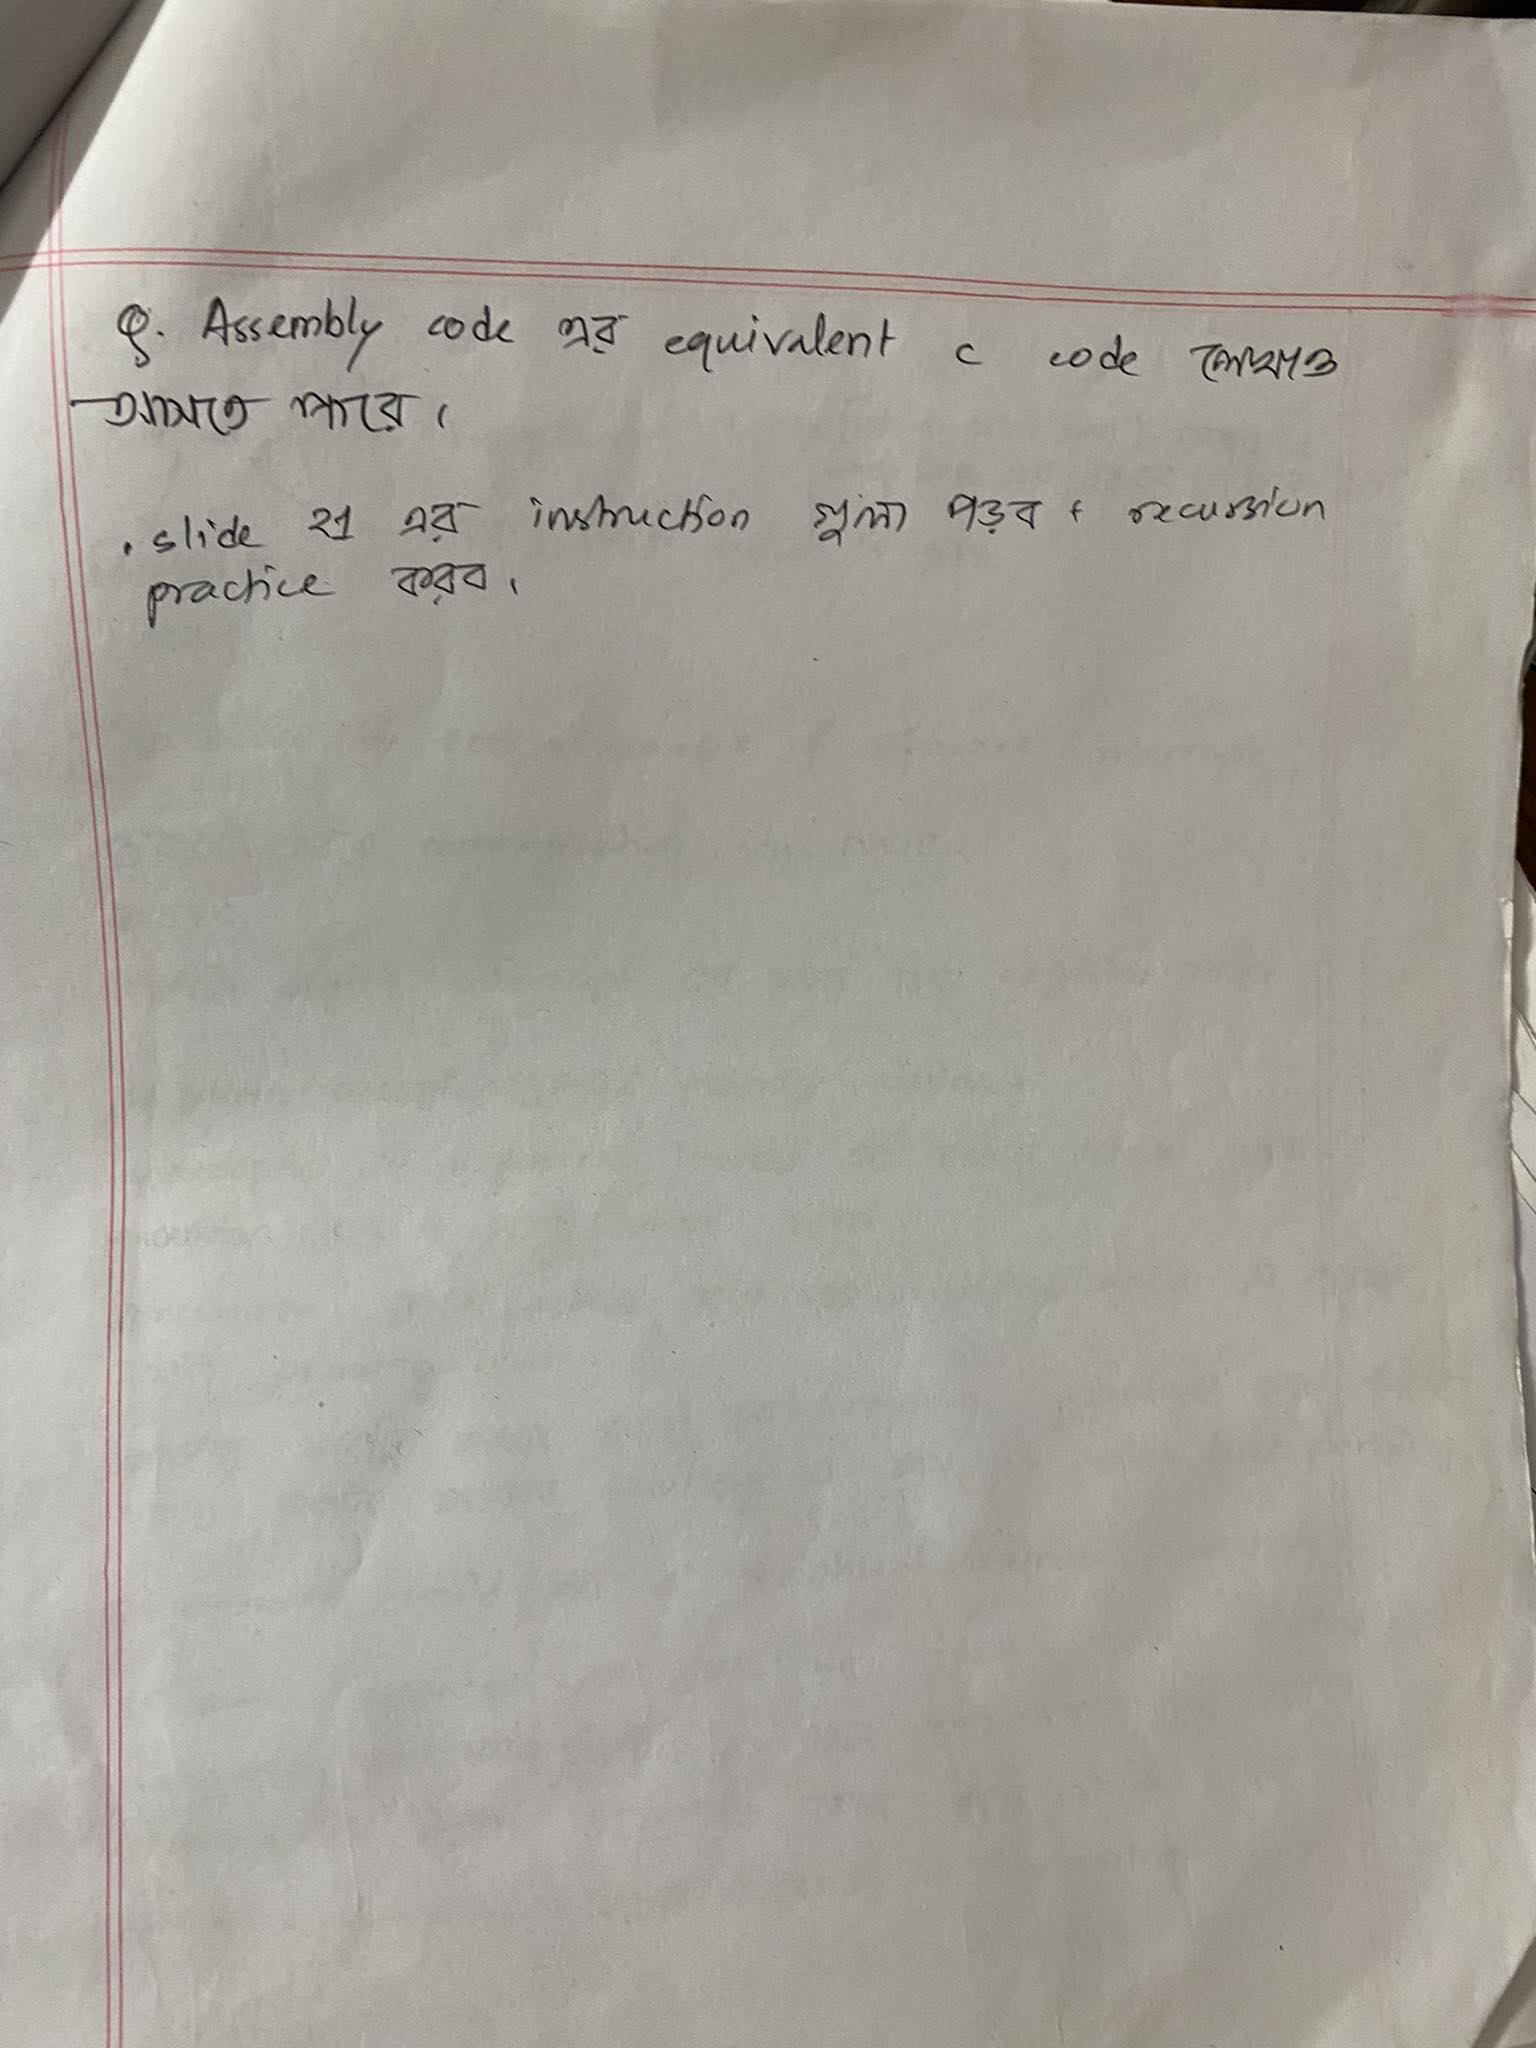 Q. Assembly code এর equivalent c code লেখাও
আসতে পারে।
. slide 21 এর instruction গুলা পড়ব + recursion
practice করব।